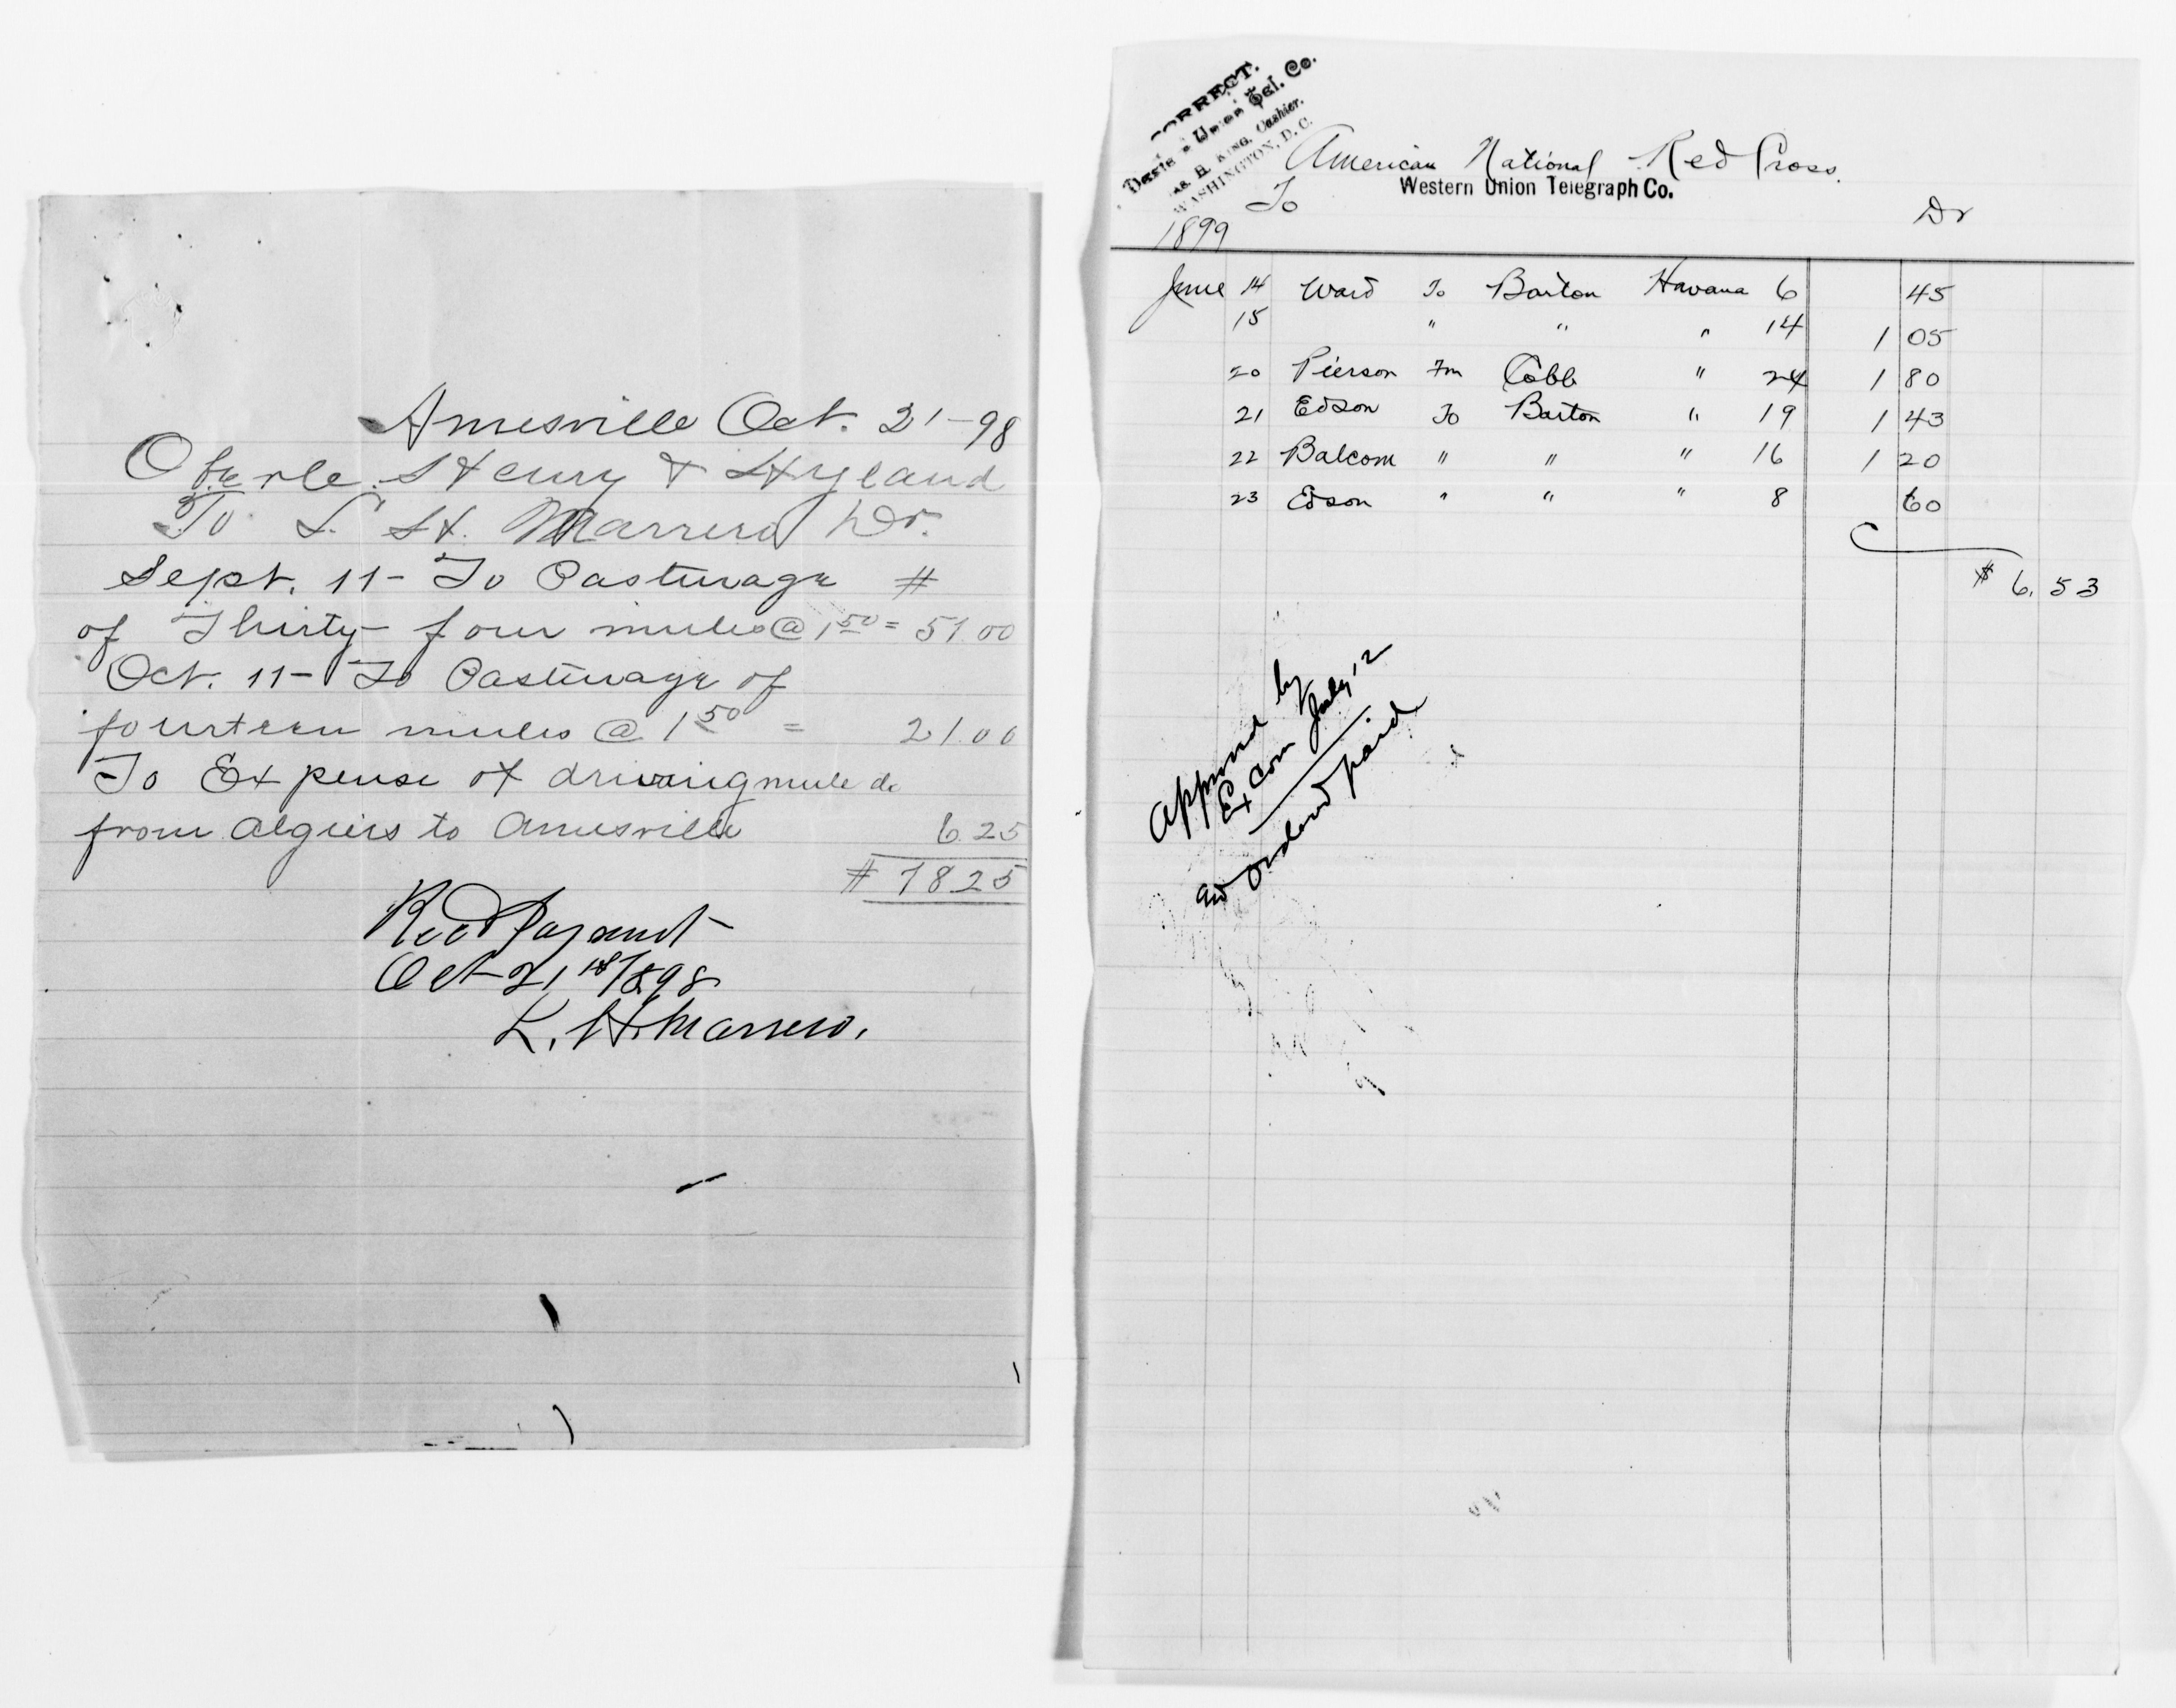 Amesville Oct. 21-98
Oberle Henry & Hyland
To L. H. Marrero Dr.
Sept. 11- To Pasturage #
of Thirty-four mules @ 1 50 = 51.00
Oct. 11- To Pasturage of
fourteen mules @ 1 50 = 21.00
To Expense of driving mule do
from Algiers to Amesville 6.25
# 7825
Recd Payment
Oct 21st/898
L. H. Marrero.
CORRECT.
Western Union Tel. Co.
H. King, Cashier.
WASHINGTON, D. C.
American National Red Cross.
To Western Union Telegraph Co. Dr
1899
June 14 Ward To Barton Havana 6 45
15 " " " 14 1 05
20 Pierson Fm Cobb " 24 1 80
21 Edson To Barton " 19 1 43
22 Balcom " " " 16 1 20
23 Edson " " " 8 60
$ 6.53
Approved by
Ex Com July 12
and ordered paid